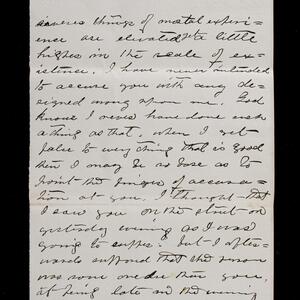 things of mortal experi-
ence are elevated a little
higher in the scale of ex-
istence. I have never intended
to accuse you with any de-
signed wrong upon me. God
knows I never have done such
a thing as that, when I get
false to everything that is good
then I may be so base as to
point the finger of accusa-
tion at you. I thought that
I saw you on the street on
yesterday evening as I was
going to supper. but I after-
wards supposed that the person
was none other than you.
it being late in the evening